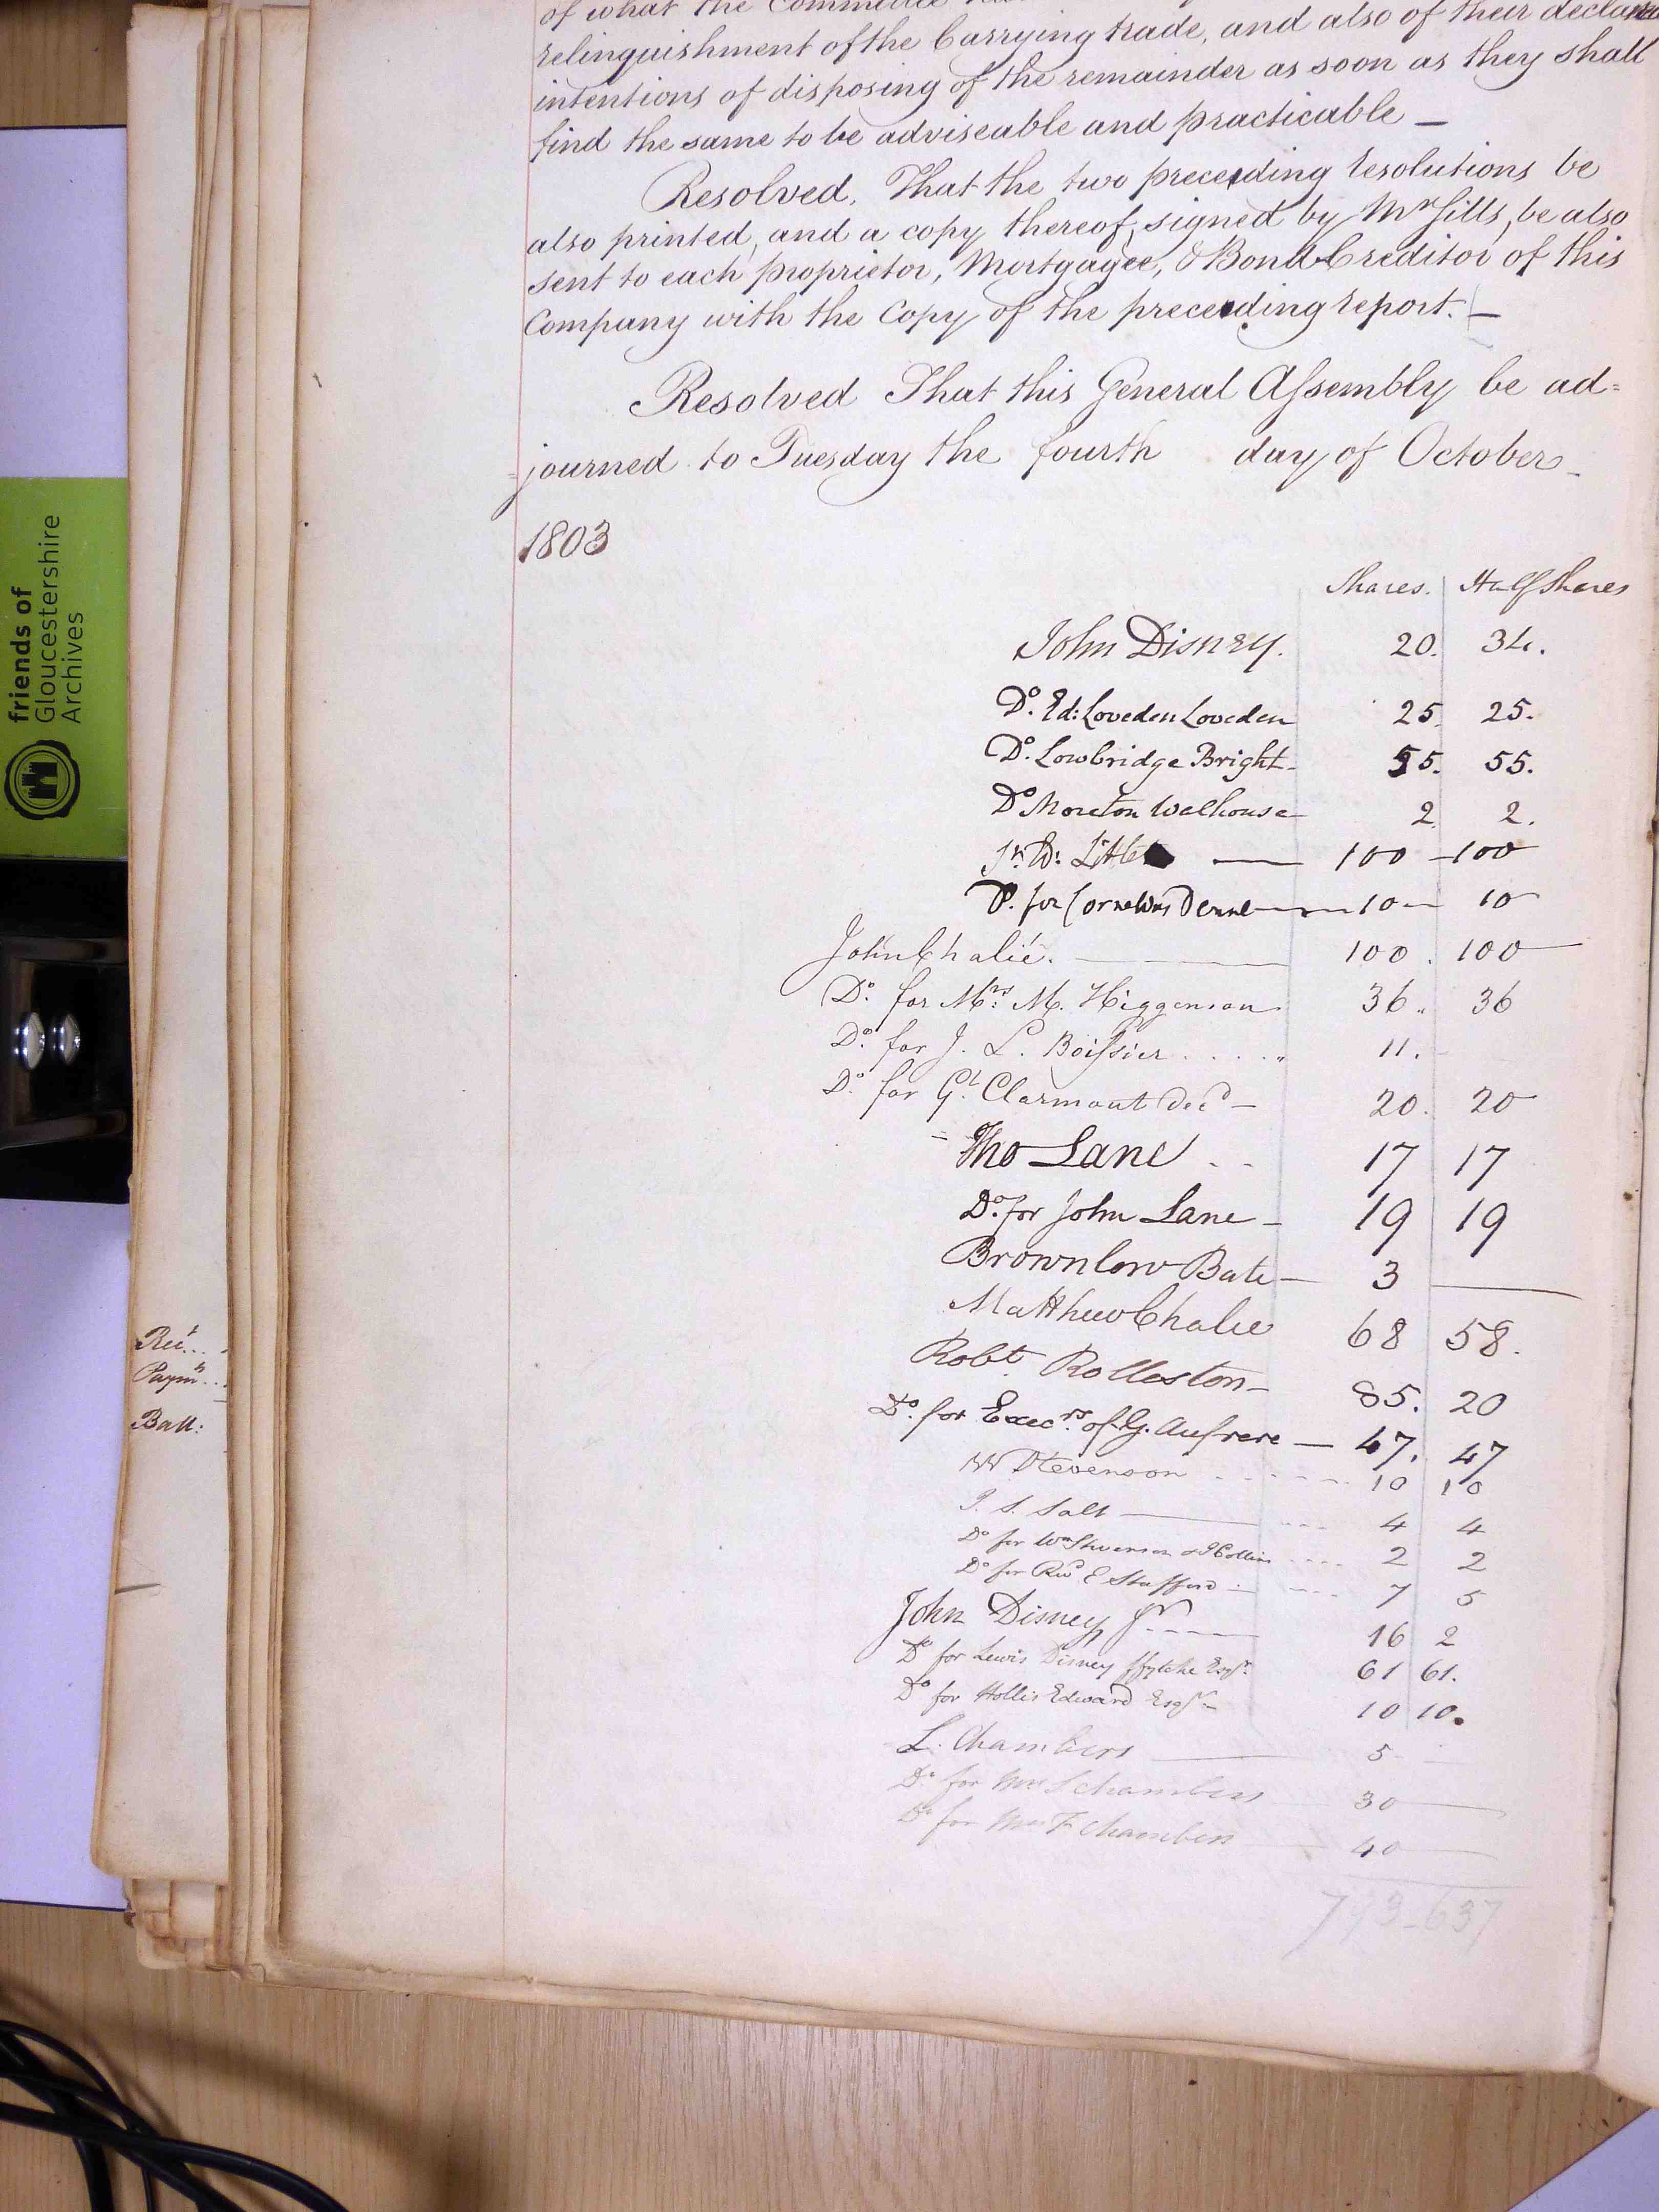 of what the Committee
relinquishment of the Carrying trade, and also of their declared
intentions of disposing of the remainder as soon as they shall
find the same to be adviseable and practicable —
Resolved, That the two preceeding resolutions be
also printed, and a copy thereof, signed by Mr Sills, be also
sent to each proprietor, Mortgagee, & Bond Creditor of this
Company with the Copy of the preceeding report. —
Resolved That this General Assembly be ad=
=journed to Tuesday the fourth day of October
1803
Shares. Half Shares
John Disney. 20. 34.
Do. Ed: Loveden Loveden 25. 25.
Do. Lowbridge Bright - 55. 55.
Do Moreton Walhouse 2. 2.
— 100 - 100
Do. for Cornelius Denne — 10 — 10
John Chalié. — 100. 100
Do. for Mrs. M. Higgenson 36. 36
Do. for J. L. Boissier .... 11.
Do. for Gt. Clarmont Decd — 20. 20
Tho Lane .. 17 17
Do. for John Lane - 19 19
Brownlow Bate — 3 —
Matthew Chalie 68 58.
Robt. Rolleston - 85. 20
Do. for Execrs. of G. Aufrere — 47. 47
W Stevenson 10 10
J. S. Salt — 4 4
Do for Wm Stevenson & J Collins 2 2
Do for Revd E Stafford 7 5
John Disney Jr 16 2
Do for Lewis Disney ffytche Esqr. 61 61.
Do for Hollis Edward Esqr. - 10 10.
L. Chambers — 5 -
Do. for Mrs S Chambers 30 —
Do for Mrs F Chambers 40 —
793 - 637
Rect...
Paymts...
Ball:
friends of
Gloucestershire
Archives